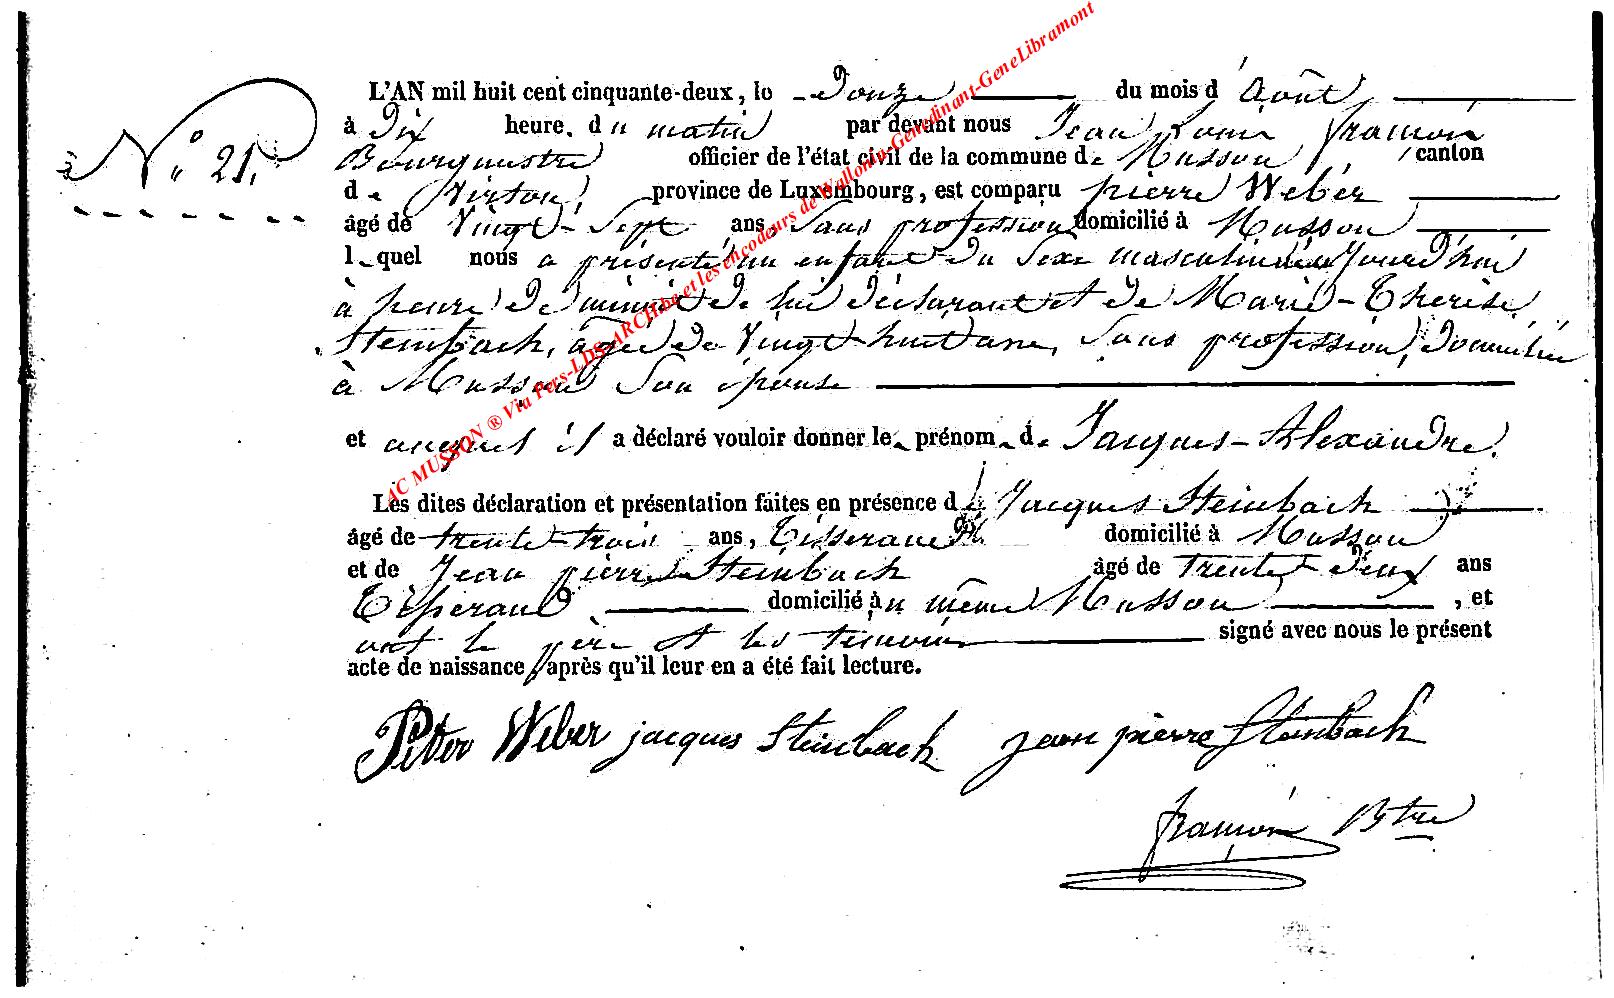 N° 21.
L'AN mil huit cent cinquante-deux, le douze du mois d'Août
à dix heure. du matin par devant nous Jean
Bourgmestre officier de l'état civil de la commune de Musson, canton
de Virton, province de Luxembourg, est comparu pierre Weber
âgé de Vingt-Sept ans, Sans profession domicilié à Musson
lequel nous a présenté un enfant du Sexe masculin né aujourd'hui
à heure de minuit de lui déclarant et de Marie-Thérèse
Steinbach, âgée de Vingt-huit ans, Sans profession, domiciliée
à Musson Son épouse
et auquel il a déclaré vouloir donner le prénom de Jacques-Alexandre.
Les dites déclaration et présentation faites en présence de Jacques Steinbach
âgé de trente-trois ans, Tisserand domicilié à Musson
et de Jean pierre Steinbach âgé de trente-deux ans
Tisserand domicilié au même Musson, et
ont le père et les témoins signé avec nous le présent
acte de naissance après qu'il leur en a été fait lecture.
Peter Weber jacques Steinbach jean pierre Steinbach
Btre
AC MUSSON ® Via Pers-LDS-ARCH.be et les encodeurs de Wallonia-Genedinant-GeneLibramont